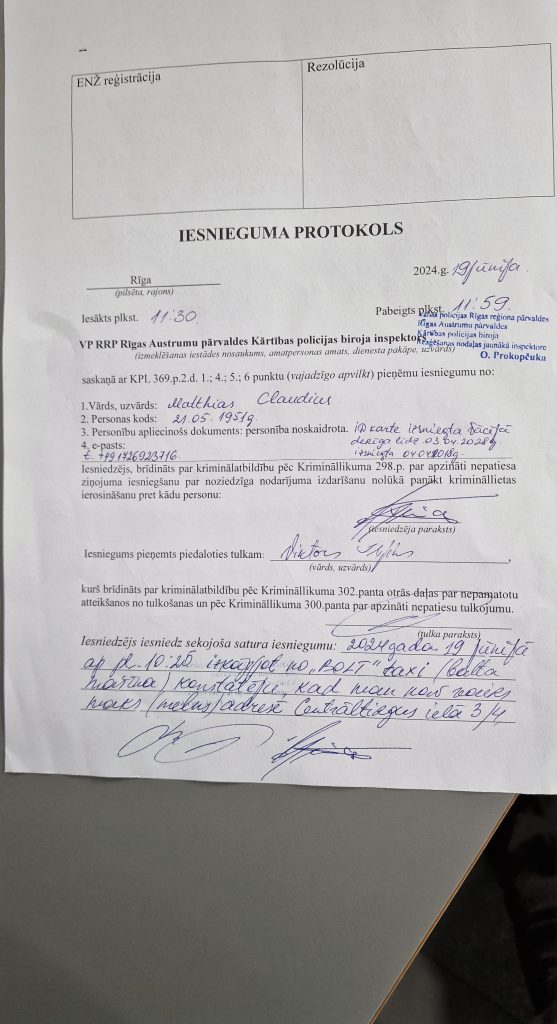 ENŽ reģistrācija
Rezolūcija
IESNIEGUMA PROTOKOLS
Rīga
(pilsēta, rajons)
2024.g. 19 jūnijā.
Iesākts plkst. 11:30
Pabeigts plkst. 11:59.
Valsts policijas Rīgas reģiona pārvaldes
Rīgas Austrumu pārvaldes
Kārtības policijas biroja
Reaģēšanas nodaļas jaunākā inspektore
O. Prokopčuka
VP RRP Rīgas Austrumu pārvaldes Kārtības policijas biroja inspektors
(izmeklēšanas iestādes nosaukums, amatpersonas amats, dienesta pakāpe, uzvārds)
saskaņā ar KPL 369.p.2.d. 1.; 4.; 5.; 6 punktu (vajadzīgo apvilkt) pieņēmu iesniegumu no:
1.Vārds, uzvārds: Matthias Claudius
2. Personas kods: 21.05.1951g.
3. Personību apliecinošs dokuments: personība noskaidrota. ID karte izsniegta Vācijā
derīga līdz 03.04.2028g
4. e-pasts:
t. +491726923716 izsniegta 04.04.2018g.
Iesniedzējs, brīdināts par kriminālatbildību pēc Krimināllikuma 298.p. par apzināti nepatiesa
ziņojuma iesniegšanu par noziedzīga nodarījuma izdarīšanu nolūkā panākt krimināllietas
ierosināšanu pret kādu personu:
(iesniedzēja paraksts)
Iesniegums pieņemts piedaloties tulkam: Viktors
(vārds, uzvārds)
kurš brīdināts par kriminālatbildību pēc Krimināllikuma 302.panta otrās daļas par nepamatotu
atteikšanos no tulkošanas un pēc Krimināllikuma 300.panta par apzināti nepatiesu tulkojumu.
(tulka paraksts)
Iesniedzējs iesniedz sekojoša satura iesniegumu: 2024.gada 19 jūnijā
ap pl. 10:20 izkāpjot no "BOLT" taxi (balta
mašīna) konstatēju, kad man nav
maks (melns) adresē Centrāltirgus ielā 3/4,